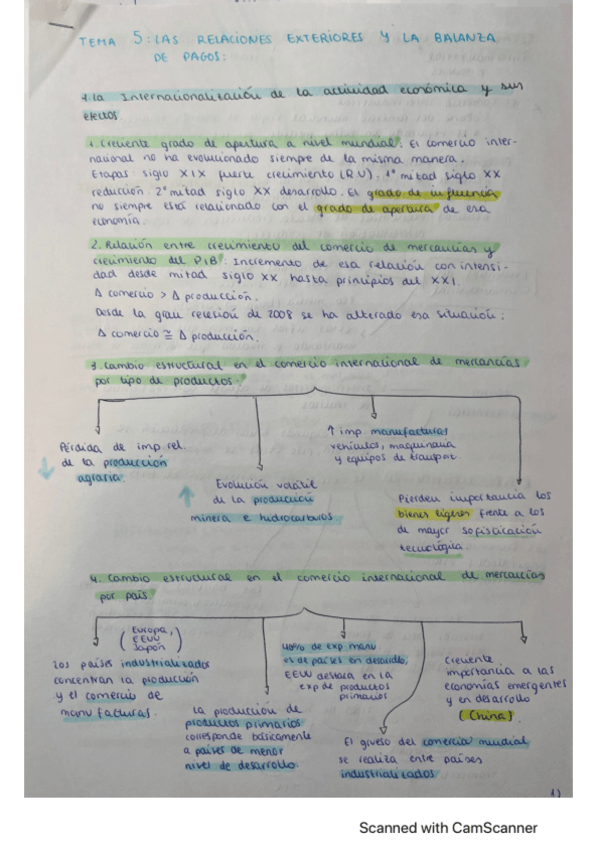 TEMA 5: LAS RELACIONES EXTERIORES Y LA BALANZA
DE PAGOS:
1. La Internacionalización de la actividad económica y sus
efectos.
1. Creciente grado de apertura a nivel mundial: El comercio inter-
nacional no ha evolucionado siempre de la misma manera.
Etapas: siglo XIX fuerte crecimiento (R.U). 1ª mitad siglo XX
reducción. 2ª mitad siglo XX desarrollo. El grado de influencia
no siempre está relacionado con el grado de apertura de esa
economía.
2. Relación entre crecimiento del comercio de mercancías y
crecimiento del PIB: Incremento de esa relación con intensi-
dad desde mitad siglo XX hasta principios del XXI.
Δ comercio > Δ producción.
Desde la gran recesión de 2008 se ha alterado esa situación:
Δ comercio ≅ Δ producción.
3. Cambio estructural en el comercio internacional de mercancías
por tipo de productos.
Pérdida de imp. rel.
de la producción
agraria.
Evolución volátil
de la producción
minera e hidrocarburos
↑ imp. manufacturas
vehículos, maquinaria
y equipos de transpor.
Pierden importancia los
bienes ligeros frente a los
de mayor sofisticación
tecnológica.
4. Cambio estructural en el comercio internacional de mercancías
por país.
(Europa,
EEUU
Japón)
Los países industrializados
concentran la producción
y el comercio de
manufacturas.
La producción de
productos primarios
corresponde básicamente
a países de menor
nivel de desarrollo.
40% de exp manu
es de países en desarrollo,
EEUU destaca en la
exp de productos
primarios
El grueso del comercio mundial
se realiza entre países
industrializados
Creciente
importancia a las
economías emergentes
y en desarrollo
(China)
1)
Scanned with CamScanner